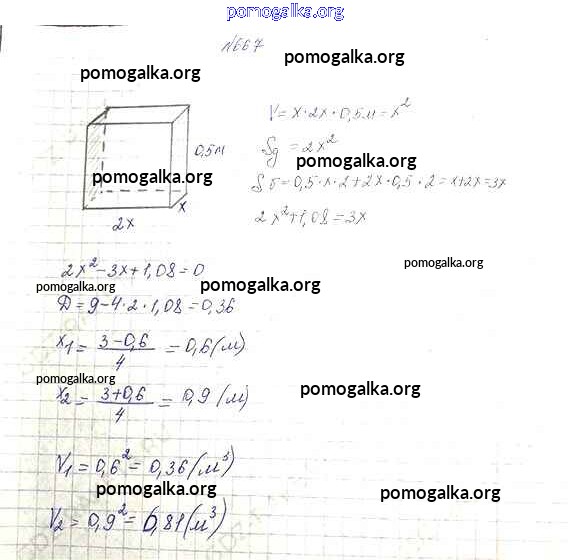 pomogalka.org
№667
pomogalka.org
pomogalka.org
V = x·2x·0,5м = x²
0,5м
Sд = 2x²
pomogalka.org
pomogalka.org
Sб = 0,5·x·2+2x·0,5·2 = x+2x = 3x
x
2x
2x²+1,08 = 3x
2x²-3x+1,08=0
pomogalka.org
pomogalka.org
pomogalka.org
D = 9-4·2·1,08 = 0,36
x₁ = (3-0,6)/4 = 0,6 (м)
pomogalka.org
x₂ = (3+0,6)/4 = 0,9 (м)
pomogalka.org
V₁ = 0,6² = 0,36 (м³)
pomogalka.org
pomogalka.org
V₂ = 0,9² = 0,81 (м³)